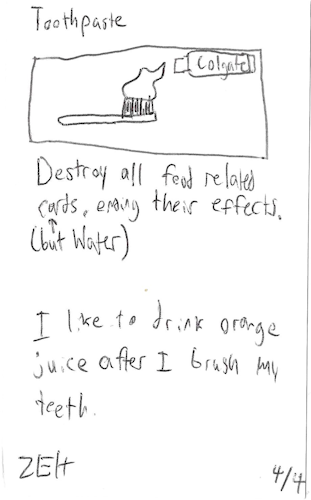 Toothpaste
Colgate
Destroy all food related
cards, ending their effects.
(but Water)
I like to drink orange
juice after I brush my
teeth.
ZEH
4/4